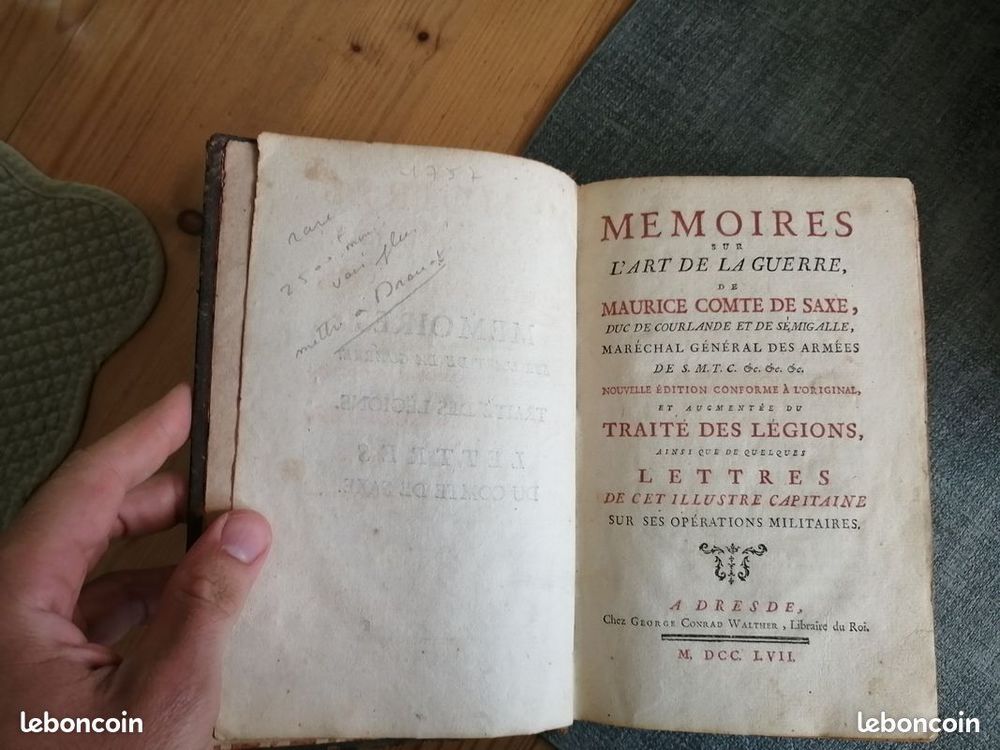 1757
rare
2500 F
voir plus
mettre à Drouot
MEMOIRES
TRAITÉ DES LÉGIONS,
LETTRES
DU COMTE DE SAXE
MEMOIRES
SUR
L'ART DE LA GUERRE,
DE
MAURICE COMTE DE SAXE,
DUC DE COURLANDE ET DE SÉMIGALLE,
MARÉCHAL GÉNÉRAL DES ARMÉES
DE S. M. T. C. &c. &c. &c.
NOUVELLE ÉDITION CONFORME À L'ORIGINAL,
ET AUGMENTÉE DU
TRAITÉ DES LÉGIONS,
AINSI QUE DE QUELQUES
LETTRES
DE CET ILLUSTRE CAPITAINE
SUR SES OPÉRATIONS MILITAIRES.
A DRESDE,
Chez GEORGE CONRAD WALTHER, Libraire du Roi.
M. DCC. LVII.
leboncoin
leboncoin